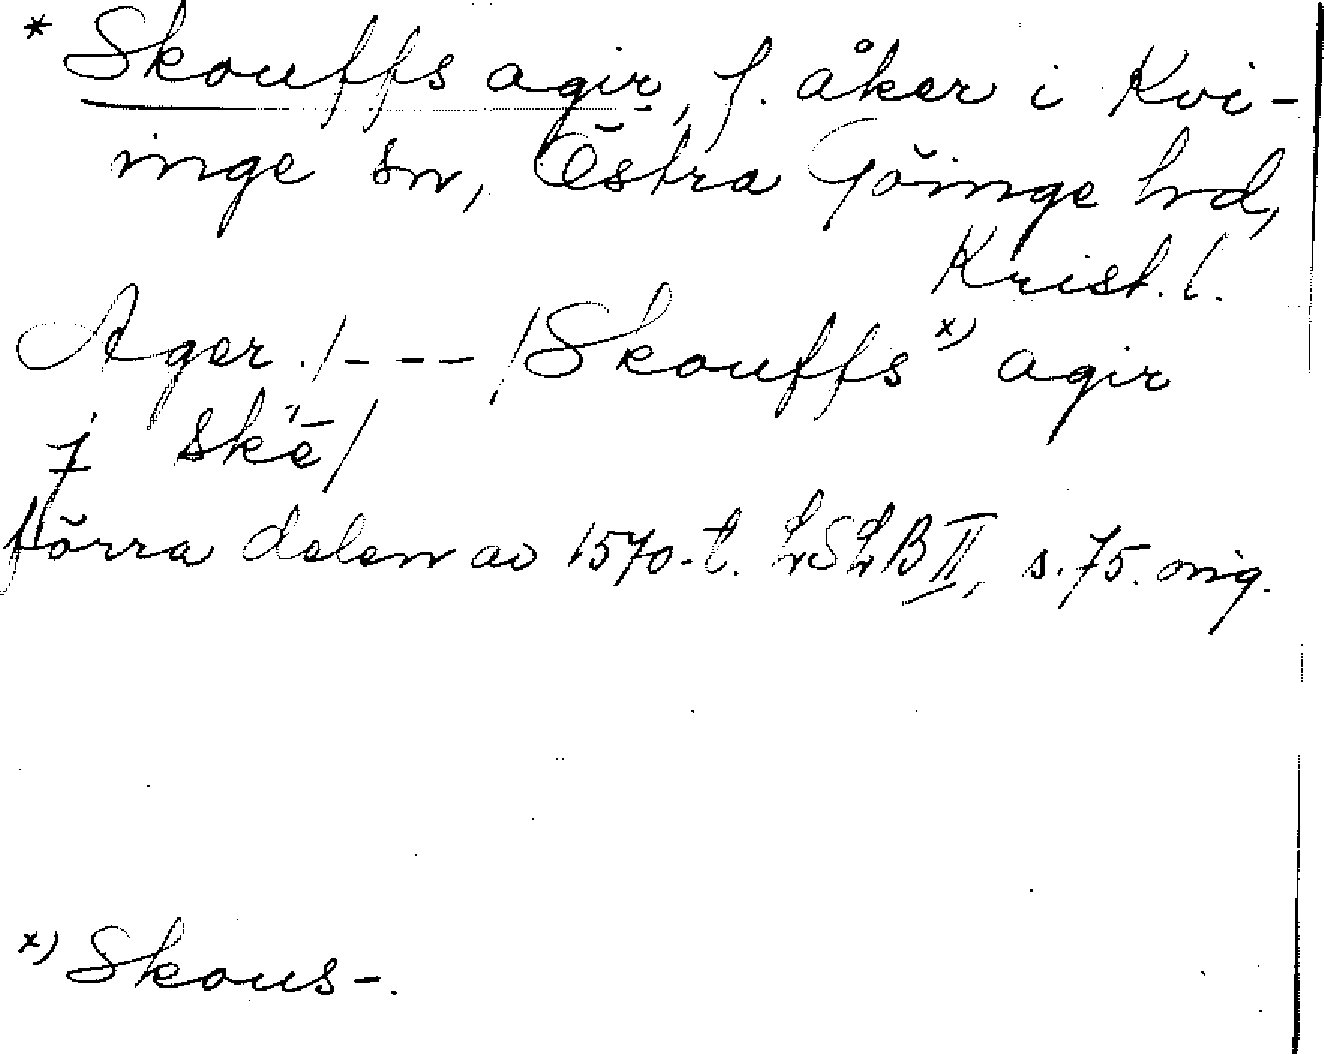 * Skouffs agir, f. åker i Kvi-
inge sn, Östra Göinge hd,
Krist. l.
Ager . /- - - /Skouffs x) agir
j skē/
förra delen av 1570-t. LSLB II, s. 75. orig.
x) Skous-.